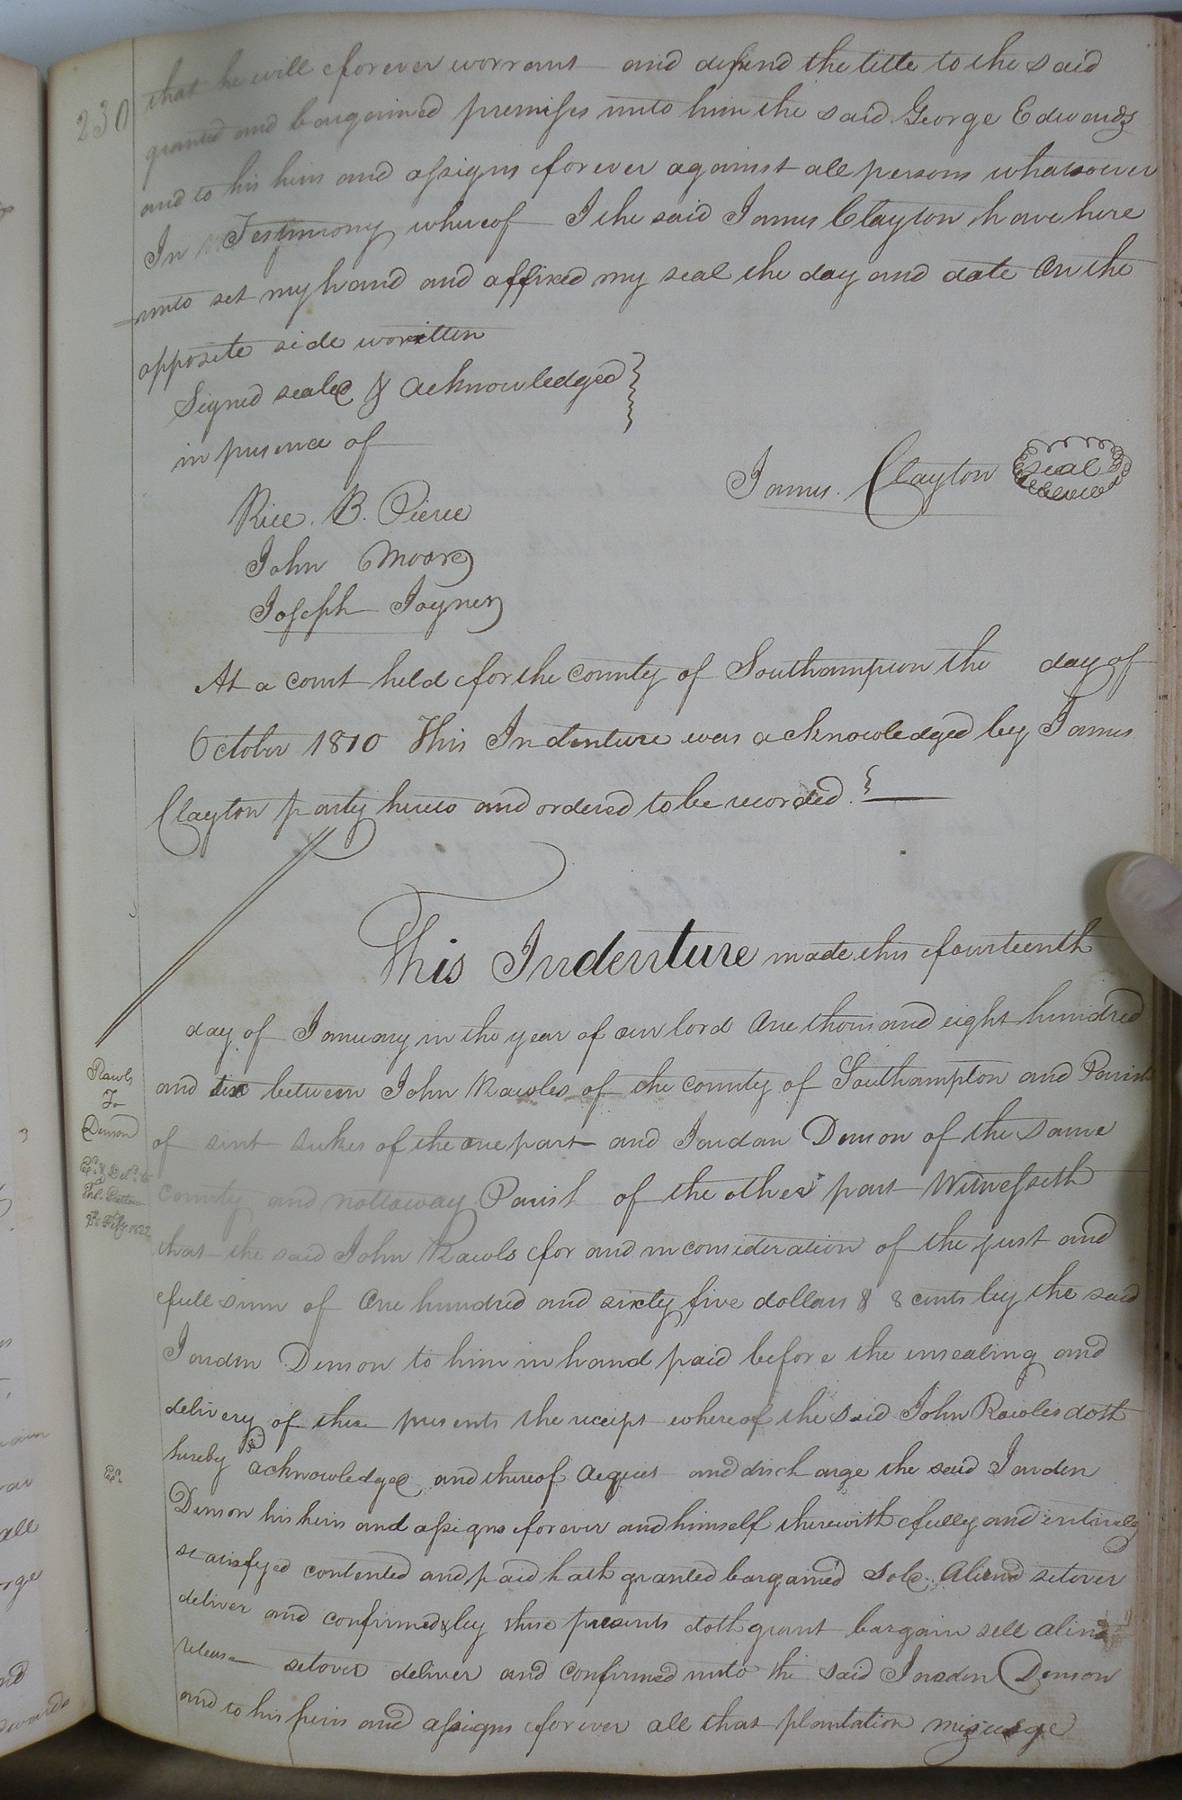 230
that he will forever worrant and defend the title to the said
granted and bargained premises unto him the said George Edwards
and to his heirs and assigns forever against all persons whatsoever
In Testimony whereof I the said James Clayton have here
=unto set my hand and affixed my seal the day and date on the
opposite side worritten
Signed sealed & acknowledged
in presence of
James Clayton seal
Rice. B. Pierce
John Moore
Joseph Joyner
At a court held for the county of Southampton the day of
October 1810 This Indenture was acknowledged by James
Clayton party hereto and ordered to be recorded.
This Indenture made this fourteenth
day of January in the year of our lord One thousand eight hundred
and ten between John Rawles of the county of Southampton and Parish
of sint Lukes of the one part and Jordan Denson of the same
county and nottoway Parish of the other part Witnesseth
that the said John Rawls for and in consideration of the just and
full sum of One hundred and sixty five dollars & 8 cents by the said
Jorden Denson to him in hand paid before the insealing and
delivery of these presents the receipt whereof the said John Rawles doth
hereby acknowledge and thereof acquet and discharge the said Jorden
Denson his heirs and assigns forever and himself therewith fully and intirely
satisfyed contented and paid hath granted bargained sold Aliend setover
deliver and confirmed & by these presents doth grant bargain sell alien
release setover deliver and confirmed unto the said Jorden Denson
and to his heirs and assigns forever all that plantation
Rawls
To
Denson
Ex.